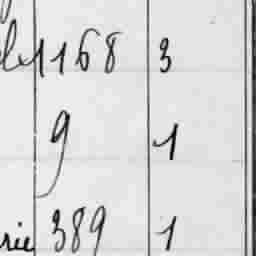 1168 3
9 1
389 1